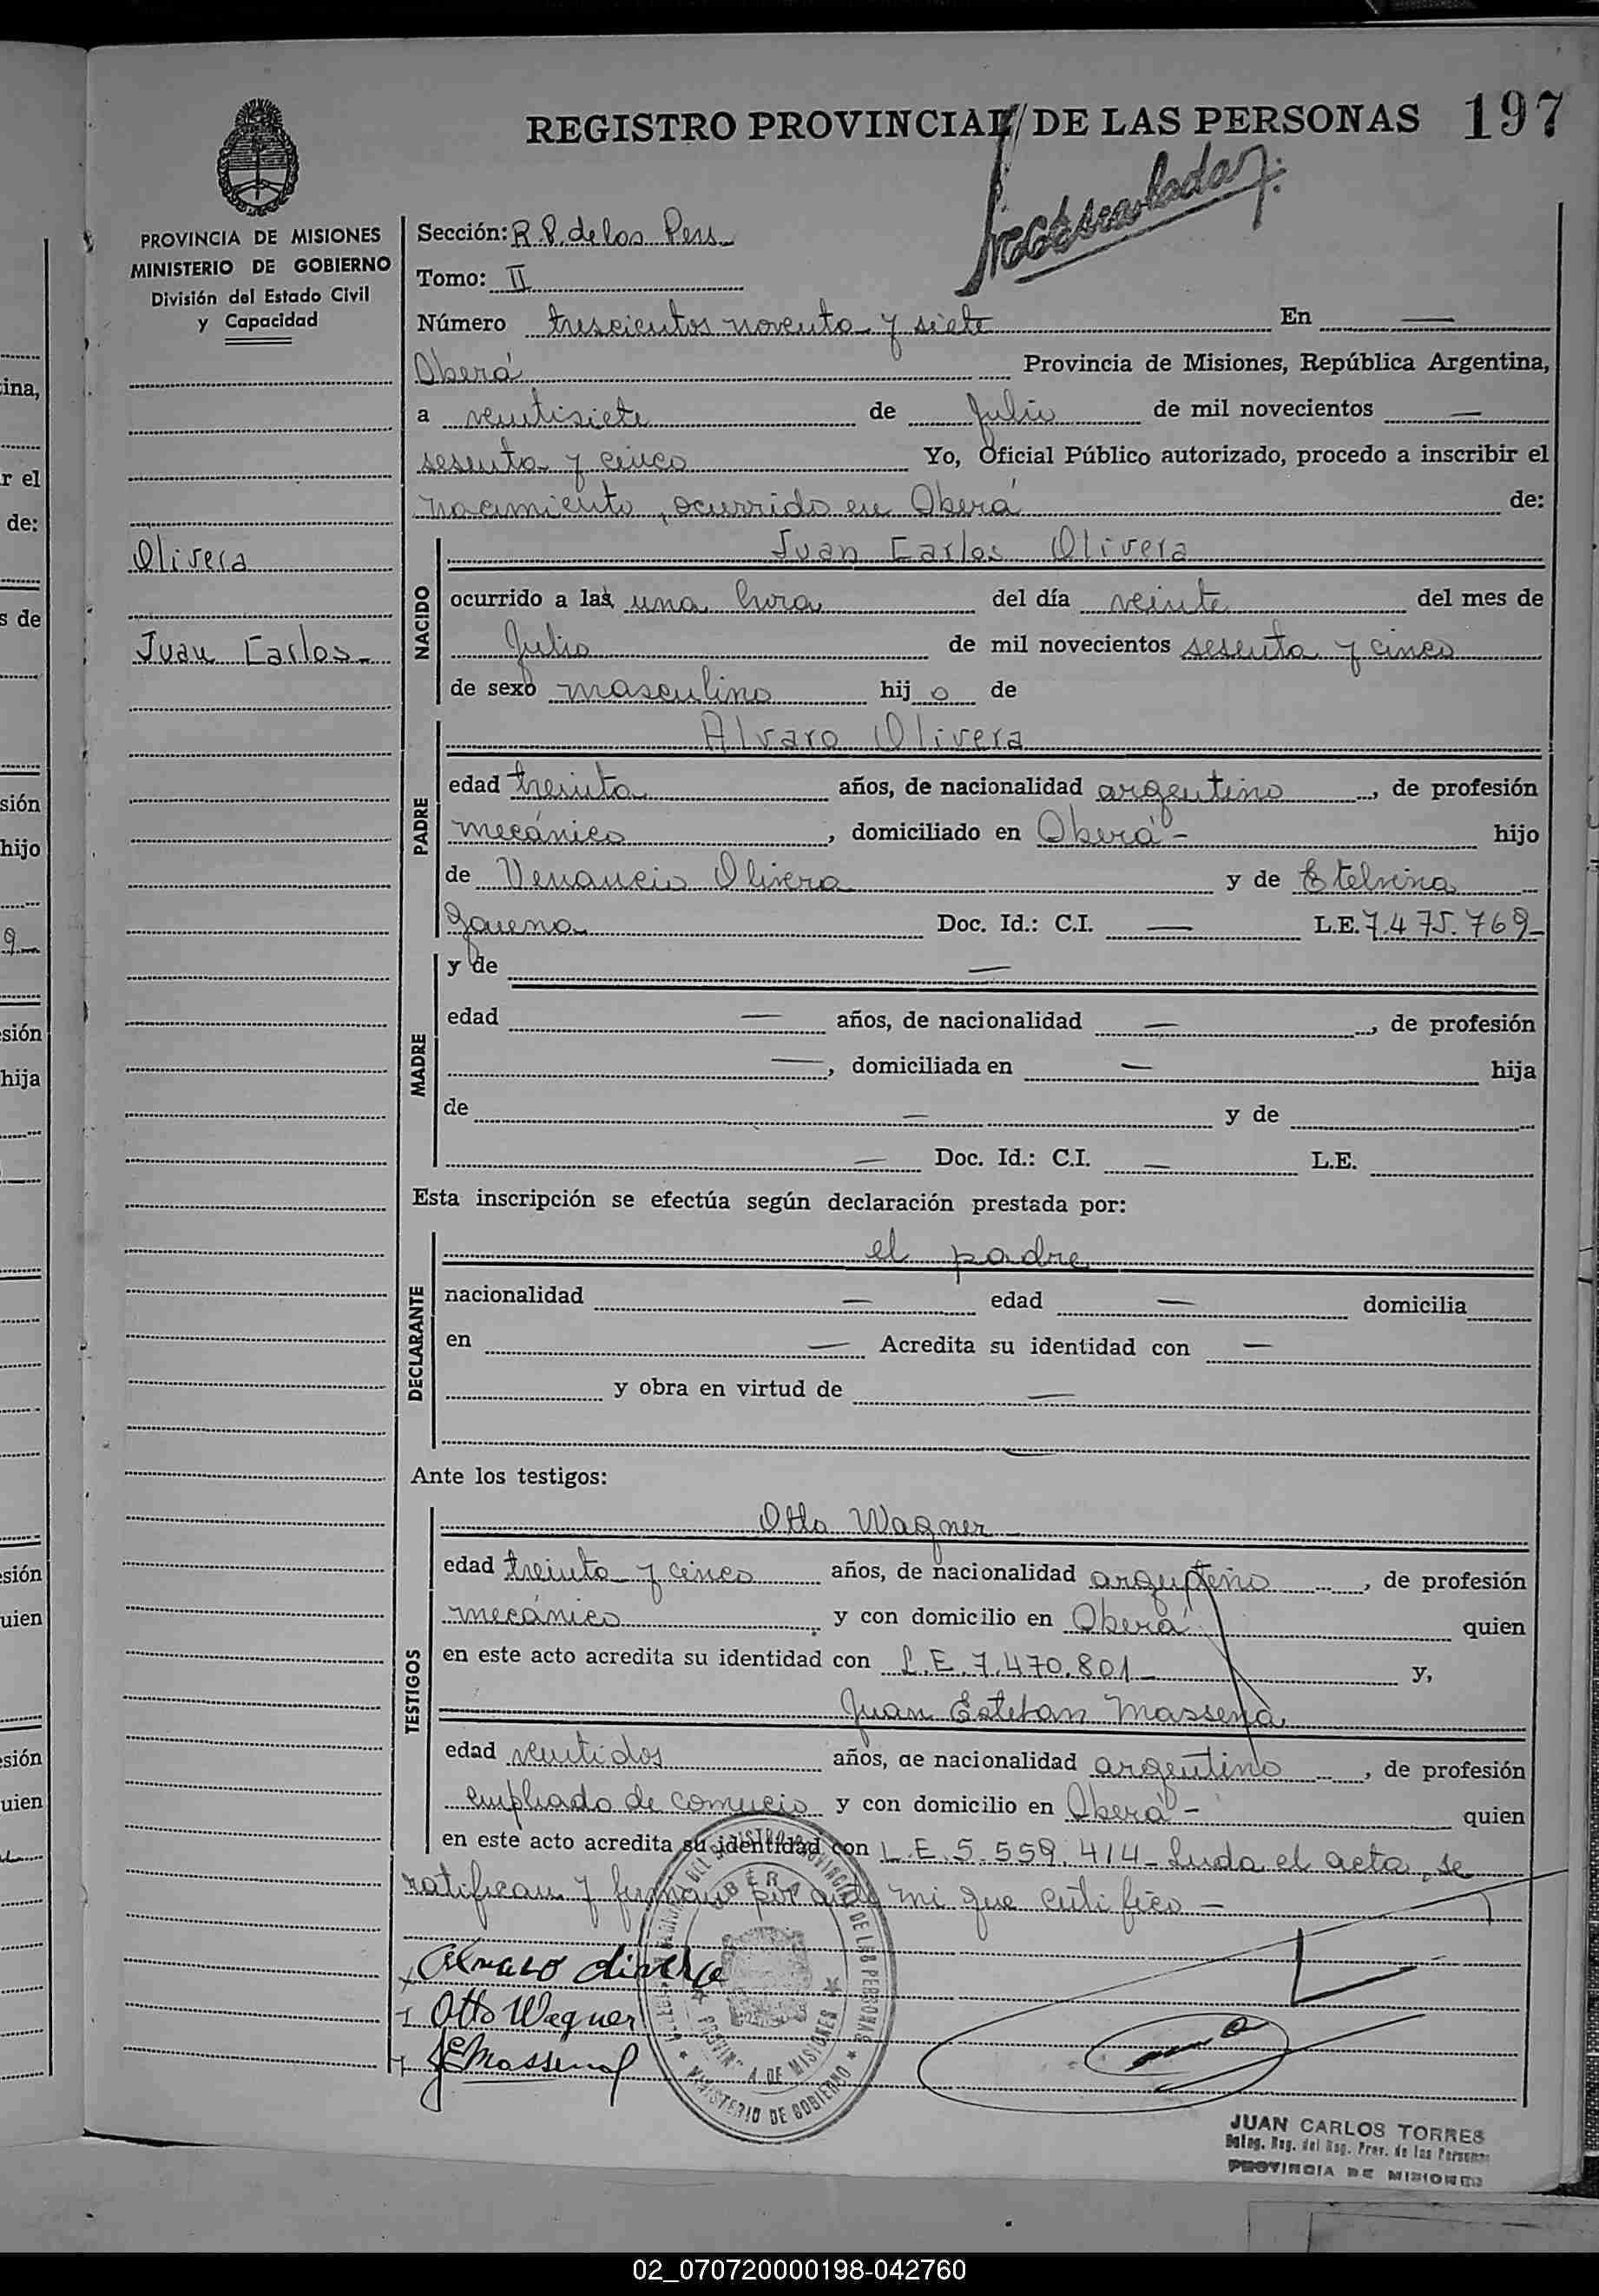 REGISTRO PROVINCIAL DE LAS PERSONAS 197
PROVINCIA DE MISIONES
MINISTERIO DE GOBIERNO
División del Estado Civil
y Capacidad
Olivera
Juan Carlos
Sección: R.P. de los Pers.
Tomo: II
Número trescientos noventa y siete En —
Oberá Provincia de Misiones, República Argentina,
a veintisiete de Julio de mil novecientos —
sesenta y cinco Yo, Oficial Público autorizado, procedo a inscribir el
nacimiento, ocurrido en Oberá de:
NACIDO
Juan Carlos Olivera
ocurrido a las una hora del día veinte del mes de
Julio de mil novecientos sesenta y cinco
de sexo masculino hijo de
PADRE
Alvaro Olivera
edad treinta años, de nacionalidad argentino, de profesión
mecánico, domiciliado en Oberá - hijo
de Venancio Olivera y de Etelvina
Doc. Id.: C.I. — L.E. 7.475.769-
MADRE
y de —
edad — años, de nacionalidad —, de profesión
—, domiciliada en — hija
de — y de
— Doc. Id.: C.I. — L.E.
Esta inscripción se efectúa según declaración prestada por:
DECLARANTE
el padre
nacionalidad — edad — domicilia
en — Acredita su identidad con —
y obra en virtud de —
—
Ante los testigos:
TESTIGOS
Otto Wagner
edad treinta y cinco años, de nacionalidad argentino, de profesión
mecánico y con domicilio en Oberá quien
en este acto acredita su identidad con L.E. 7.470.801 y,
Juan Esteban Massena
edad veintidos años, de nacionalidad argentino, de profesión
empleado de comercio y con domicilio en Oberá - quien
en este acto acredita su identidad con L.E. 5.559.414- Leida el acta, se
ratifican y firman por ante mi que certifico -
Alvaro Olivera
Otto Wagner
JEMassena
OBERA
PROVINCIA DE MISIONES
MINISTERIO DE GOBIERNO
JUAN CARLOS TORRES
Deleg. Reg. del Reg. Prov. de las Personas
PROVINCIA DE MISIONES
ina,
r el
de:
s de
sión
hijo
9
sión
hija
sión
uien
sión
uien
02_070720000198-042760